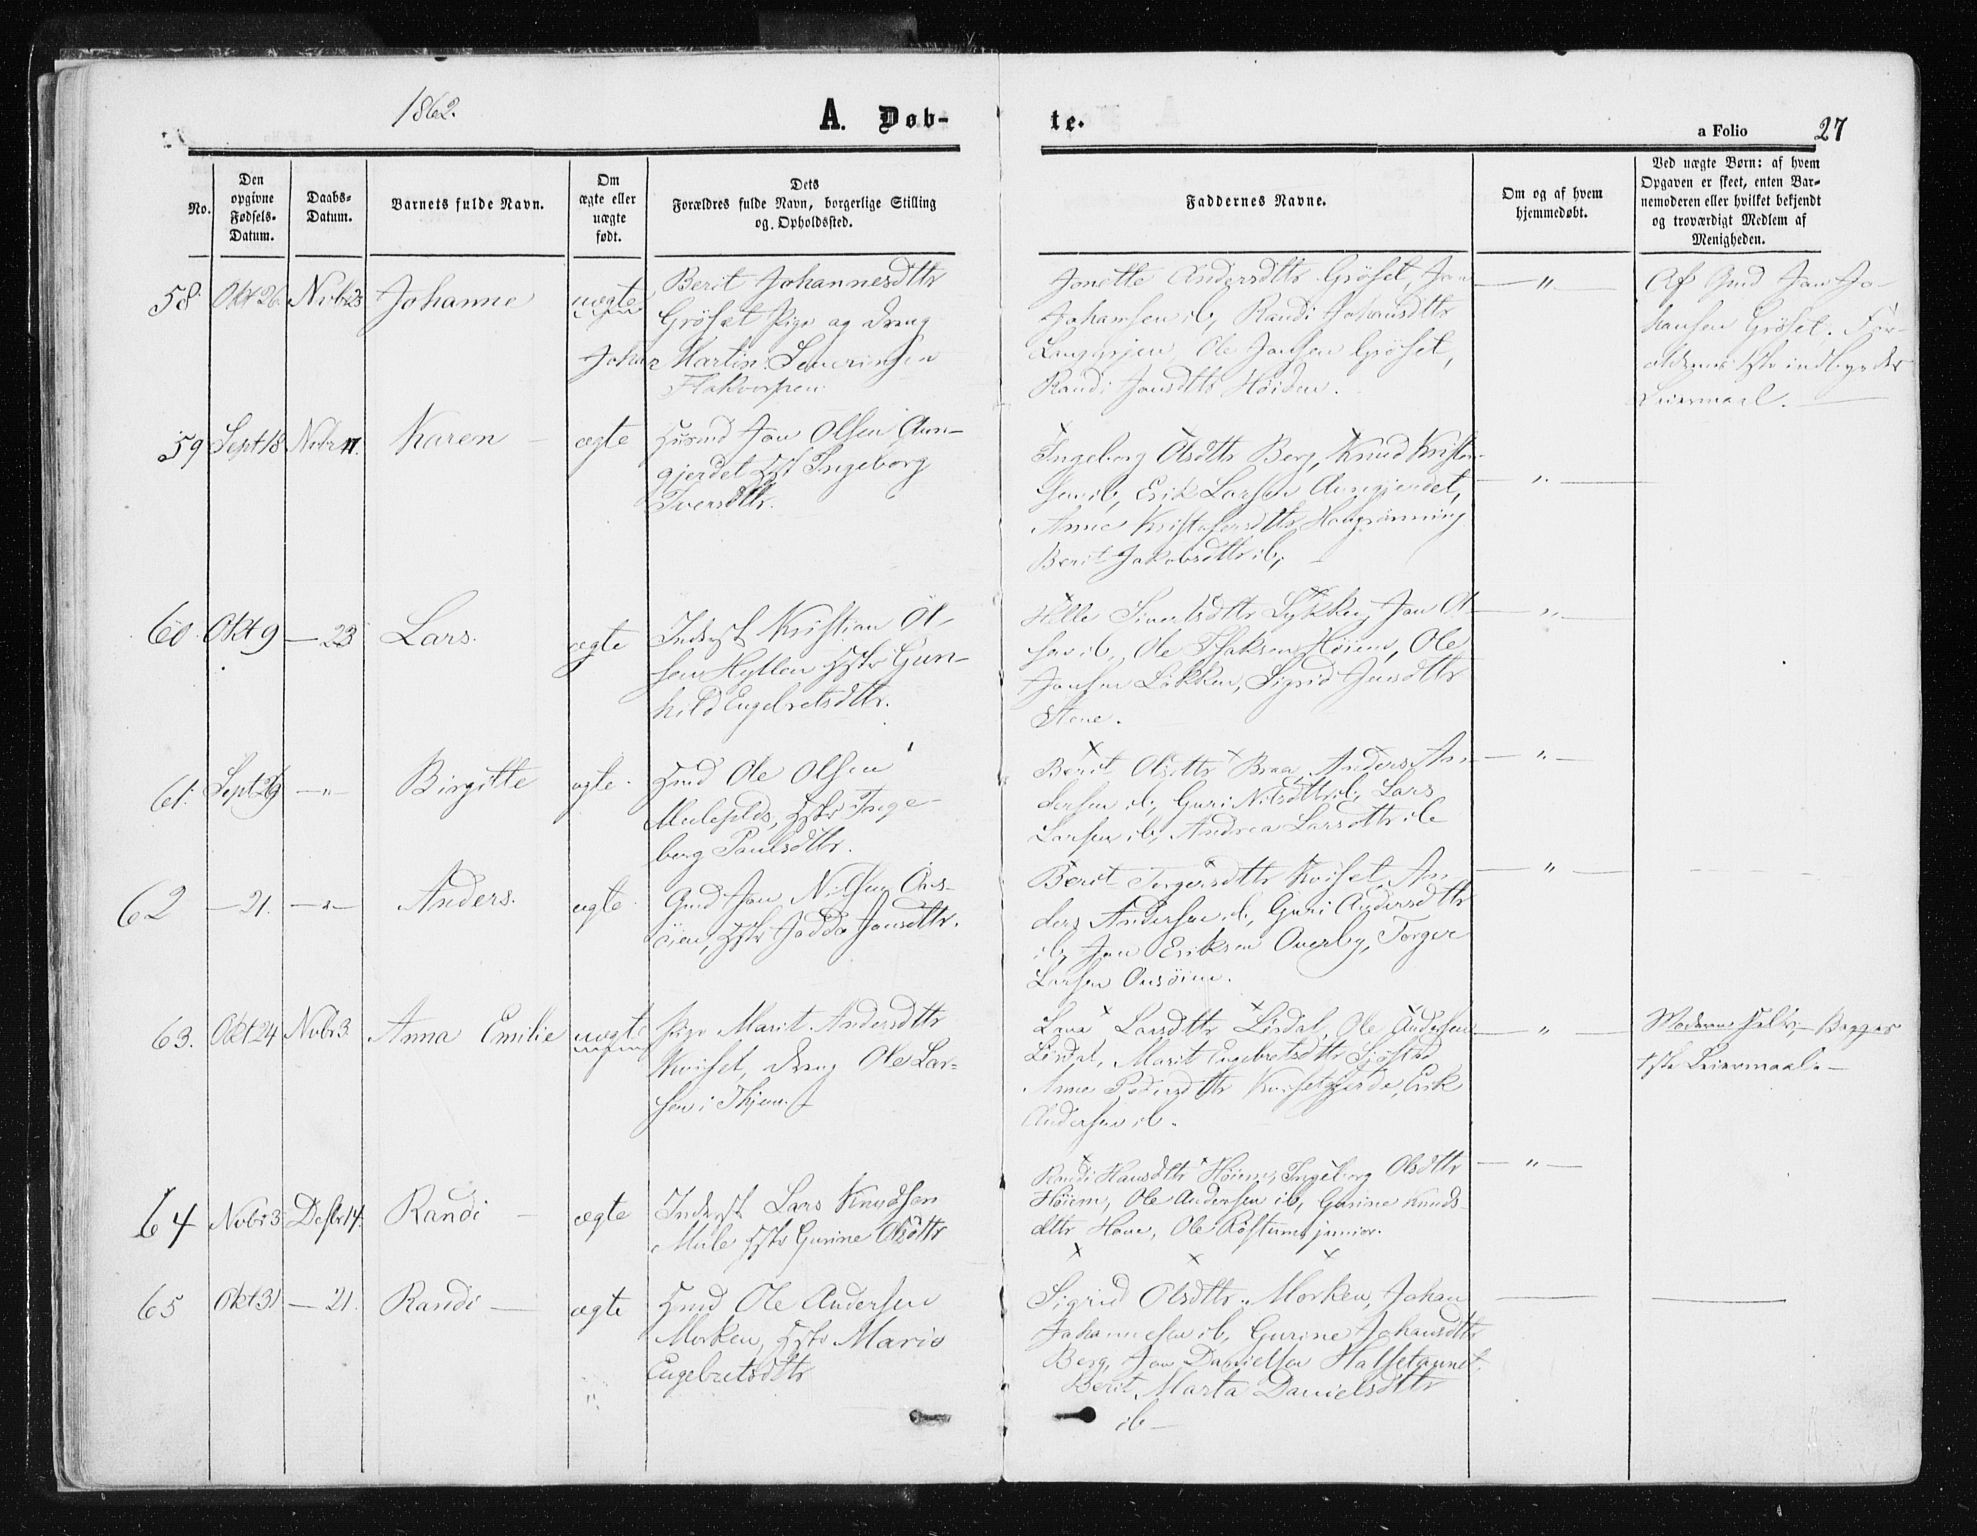 1862.
A. Døb-
te.
a Folio 27
No.
Den opgivne Fødsels-Datum.
Daabs-Datum.
Barnets fulde Navn.
Om ægte eller uægte født.
Dets Forældres fulde Navn, borgerlige Stilling og Opholdssted.
Faddernes Navne.
Om og af hvem hjemmedøbt.
Ved uægte Børn: af hvem Opgaven er skeet, enten Barnemoderen eller hvilket bekjendt og troværdigt Medlem af Menigheden.
58. Okt 26. Novbr 23 Johanne uægte
Berit Johannesdttr
Gröset Pige og Dreng
Johan Martin Severinsen
Jonette Andersdttr Gröset, Jon
Johansen ib, Randi Johansdttr
Ole Jonsen Gröset,
Randi Jonsdttr Höiden.
— " —
Af Gmd Jon Jo-
hansen Gröset. For-
ældrenes 1ste indbyrdes
Leiermaal. —
59 Sept 18 Novbr Karen — ægte
Husmd Jon Olsen Aun-
gjerdet Hst Ingeborg
Iversdttr.
Ingeborg Olsdttr Berg, Knud Kristen-
sen ib, Erik Larsen Aungjerdet,
Anne Kristofersdttr Haugrönning
Berit Jakobsdttr ib,
— " —
60 Okt 9 — 23 Lars. ægte
Inderst Kristian Ol-
sen Hyllen Hstr Gun-
hild Engebretsdttr.
Sivertsdttr Lykken, Jon Ol-
sen ib, Ole Isaksen Höiem, Ole
Jonsen Lökken, Sigrid Jonsdttr
Stene.
— " —
61. Sept 29 — " — Birgitte ægte.
Hmd Ole Olsen
Hstr Inge-
borg Paulsdttr.
Berit Olsdttr Braa, Anders An-
dersen ib, Guri Nilsdttr ib, Lars
Larsen ib, Andrea Larsdttr ib
— " —
62 — 21. — " — Anders. ægte.
Gmd Jon Nilsen Ons-
öien, Hstr Jonsdttr.
Berit Torgersdttr Kviset, An-
ders Andersen ib, Guri Andersdttr
ib, Jon Eriksen Overby, Torger
Larsen Onsöien.
— " —
63. Okt 24 Novbr 3 Anna Emilie uægte
Pige Marit Andersdttr
Kviset, Dreng Ole Lar-
sen i Thjem.
Lena Larsdttr Lördal, Ole Andersen
Lördal, Marit Engebretsdttr Sjöstad
Anne Pedersdttr Kvisetgjerde, Erik
Andersen ib.
— " —
Moderen selv, — Begges
1ste Leiermaal. —
64 Novbr 3 Desbr 14. Randi — ægte
Inderst Lars Knudsen
Mule Hstr Gurine Olsdttr
Randi Hansdttr Höiem, Ingeborg Olsdttr
Höiem, Ole Andersen ib, Gurine Knuds-
dttr Hove, Ole Röstum junior.
— " —
65 Okt 31 — 21. Randi — ægte
Hmd Ole Andersen
Morken, Hstr Marie
Engebretsdttr
Sigrid Olsdttr. Morken, Johan
Johannesen ib, Gurine Johansdttr
Berg, Jon Danielsen Halsetaunet.
Berit Marta Danielsdttr
ib —